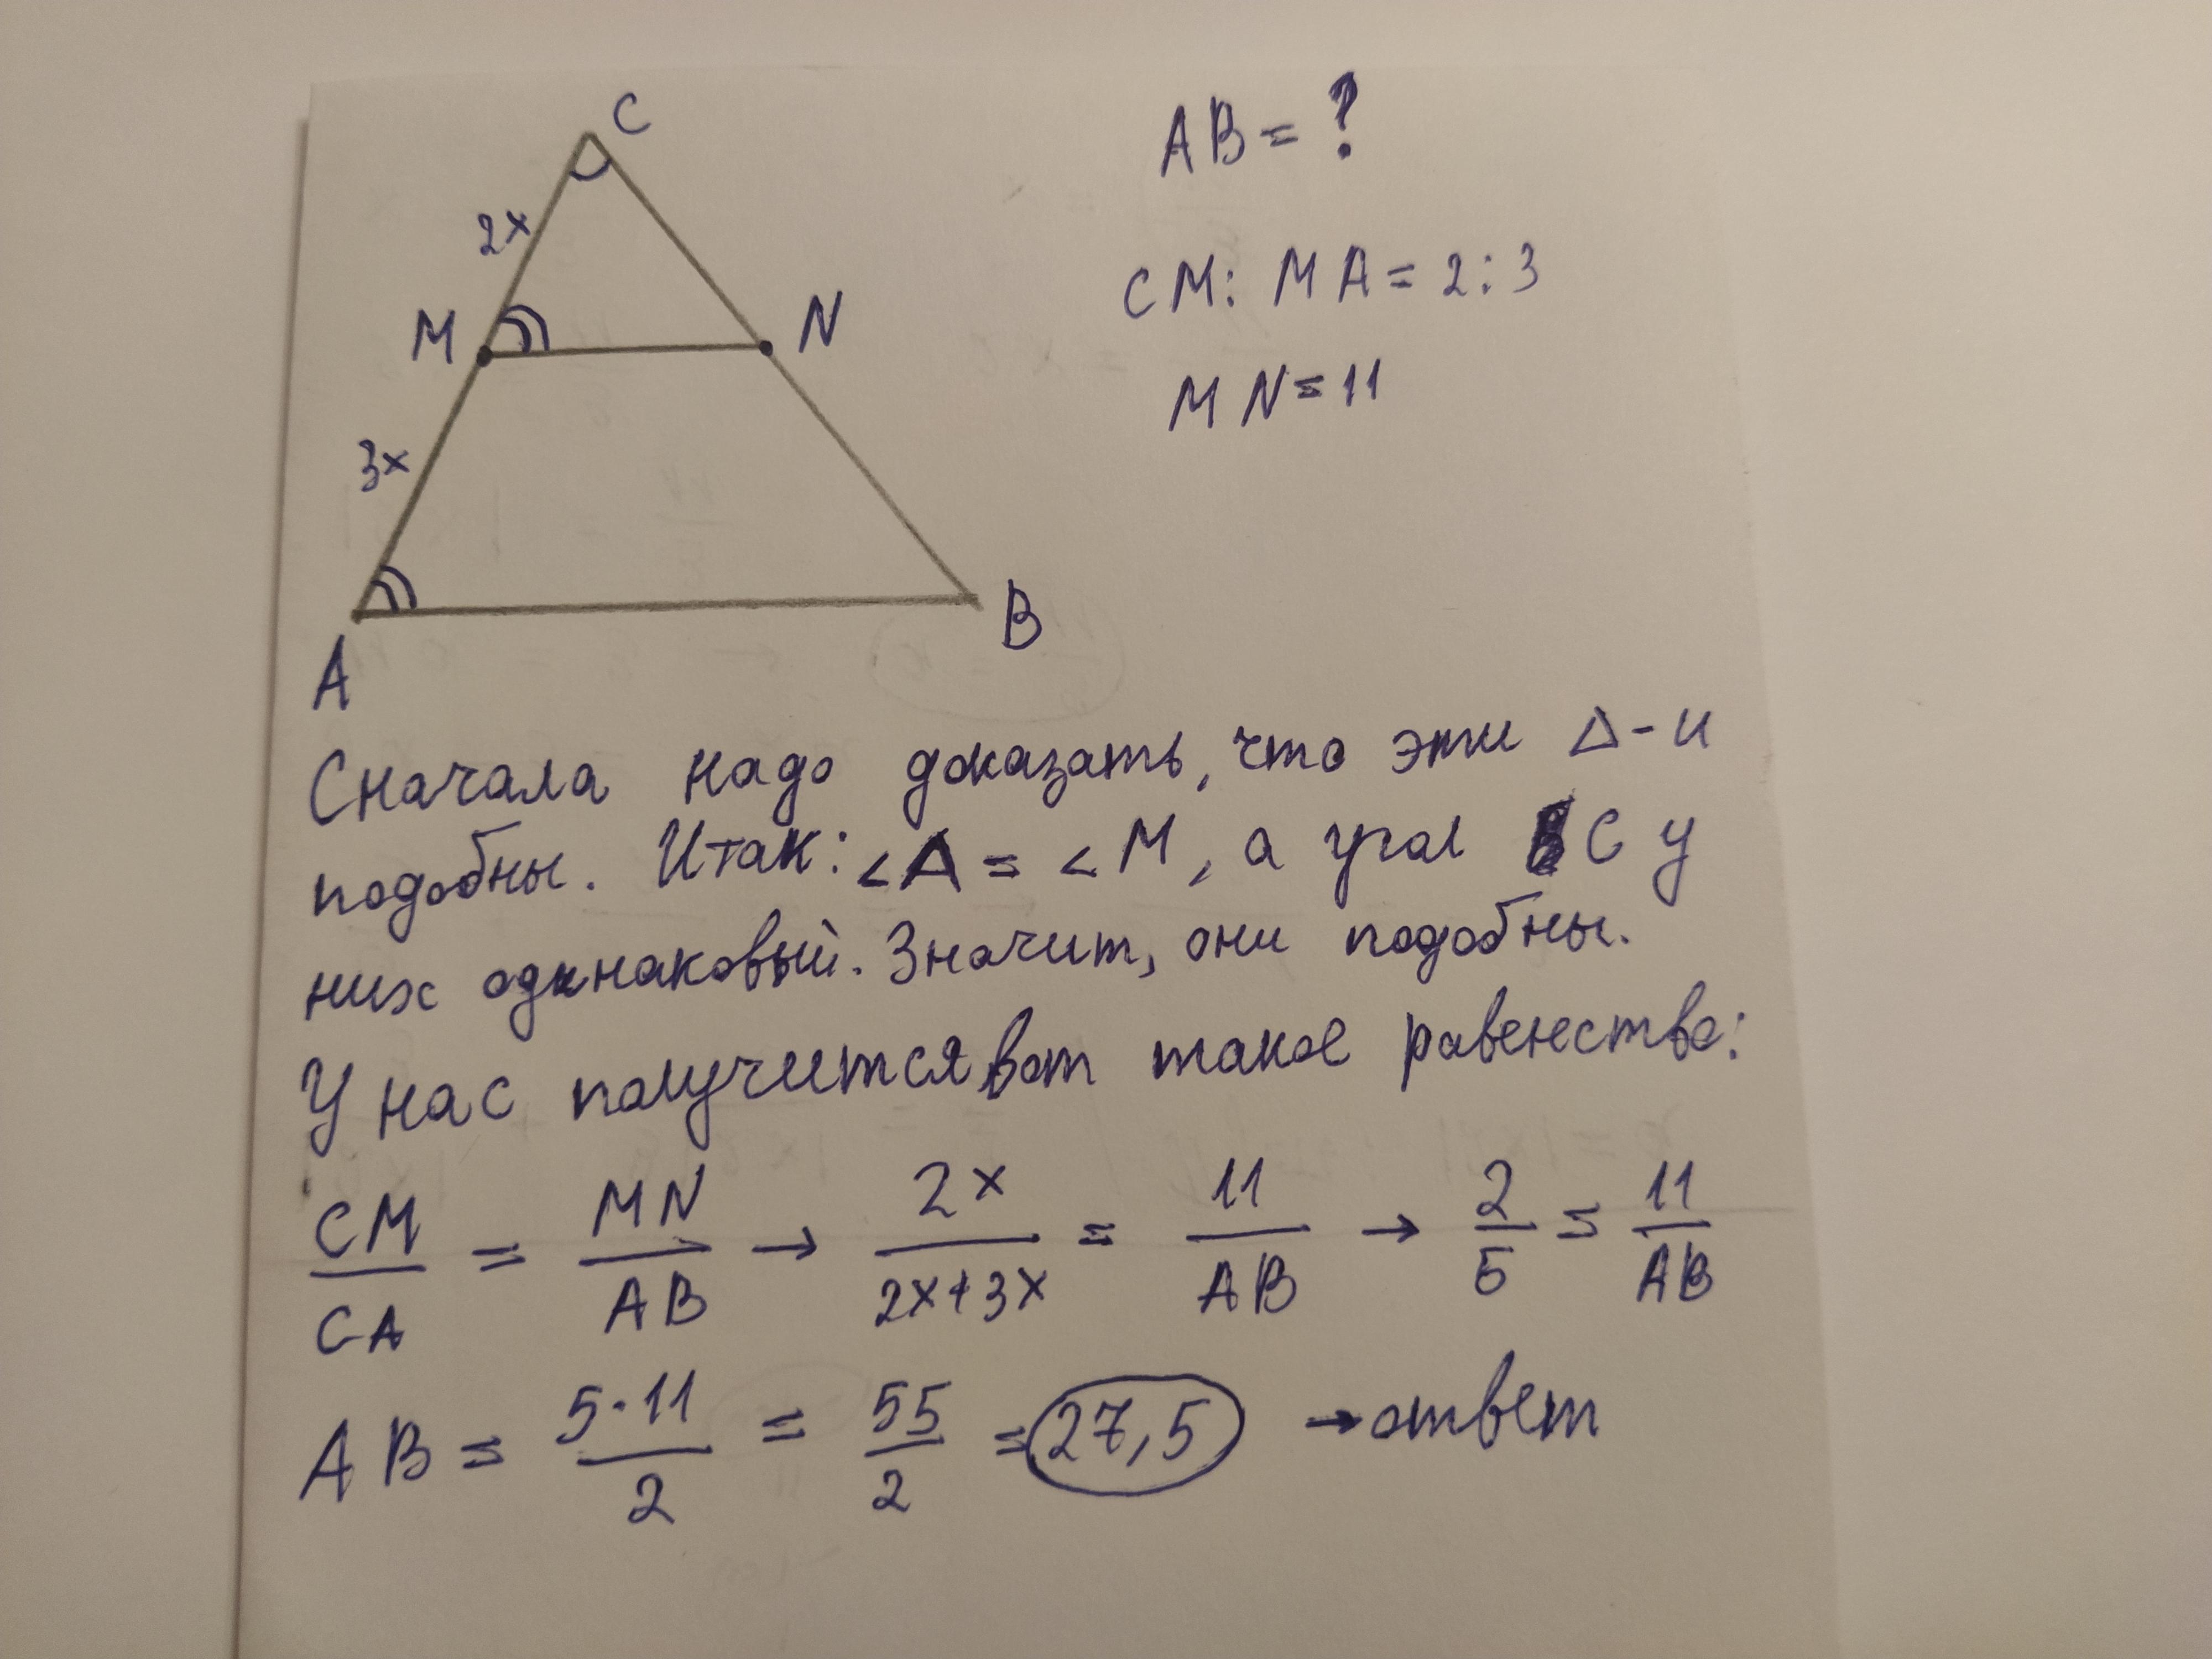 C
AB = ?
2x
CM : MA = 2 : 3
M
N
MN = 11
3x
A
B
Сначала надо доказать, что эти Δ-и
подобны. Итак: ∠A = ∠M, а угол C у
них одинаковый. Значит, они подобны.
У нас получится вот такое равенство:
CM/CA = MN/AB → 2x/2x+3x = 11/AB → 2/5 = 11/AB
AB = 5·11/2 = 55/2 = 27,5 → ответ